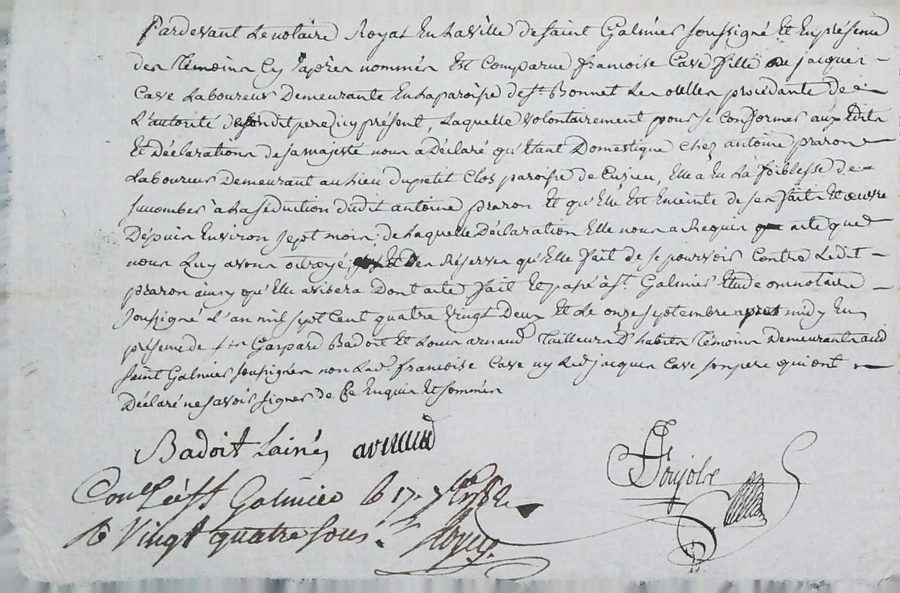 Pardevant Le notaire Royal En La ville de saint Galmier soussigné Et En présence
des Témoins Cy Après nommés Est Comparue francoise Cave fille de jacques
Cave Laboureur Demeurante En La paroisse de st Bonnet Les procédante de
L'autorité dudit pere icy présent, Laquelle volontairement pour se Conformer aux Edits
Et Déclarations de sa majesté nous a Déclaré qu'Etant Domestique Chez antoine praron
Laboureur Demeurant au Lieu du petit Clos paroisse de Cuzieu, Elle a Eu La foiblesse de
sucomber à La séduction dudit antoine praron Et qu'Elle Est Enceinte de ses faits Et œuvre
Depuis Environ sept mois, de Laquelle Déclaration Elle nous a Requis acte que
nous Luy avons octroyé, Réserves qu'Elle fait de se pourvoir Contre Ledit
praron ainsy qu'Elle avisera Dont acte fait Et passé à st Galmier Etude du notaire
soussigné L'an mil sept Cent quatre vingt Deux Et Le onze septembre après midy En
présence de sr Gaspard Badoit Et Louis arnaud Tailleurs D'habits Témoins Demeurants aud
saint Galmier soussignés non Lad francoise Cave ny Led jacques Cave son pere qui ont
Déclaré ne savoir signer de Ce Enquis Et sommés
Badoit Lainé arnaud
Ponjolve
Con à st Galmier le 17 7bre 1782
R Vingt quatre sous